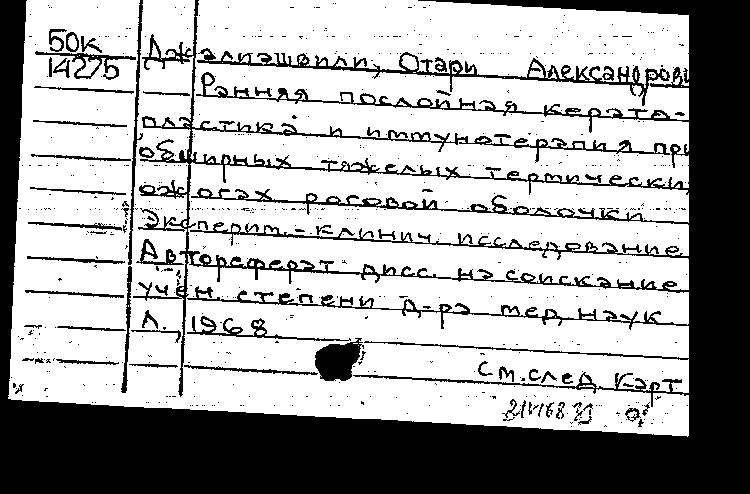 50к
14275
Джалиашвили, Отари Александрови
Ранняя послойная керато-
пластика и иммунотерапия при
обширных тяжелых термически
ожогах роговой оболочки
Эксперим.-клинич. исследование
Автореферат дисс. на соискание
учен. степени д-ра мед. наук
Л., 1968
см. след. карт